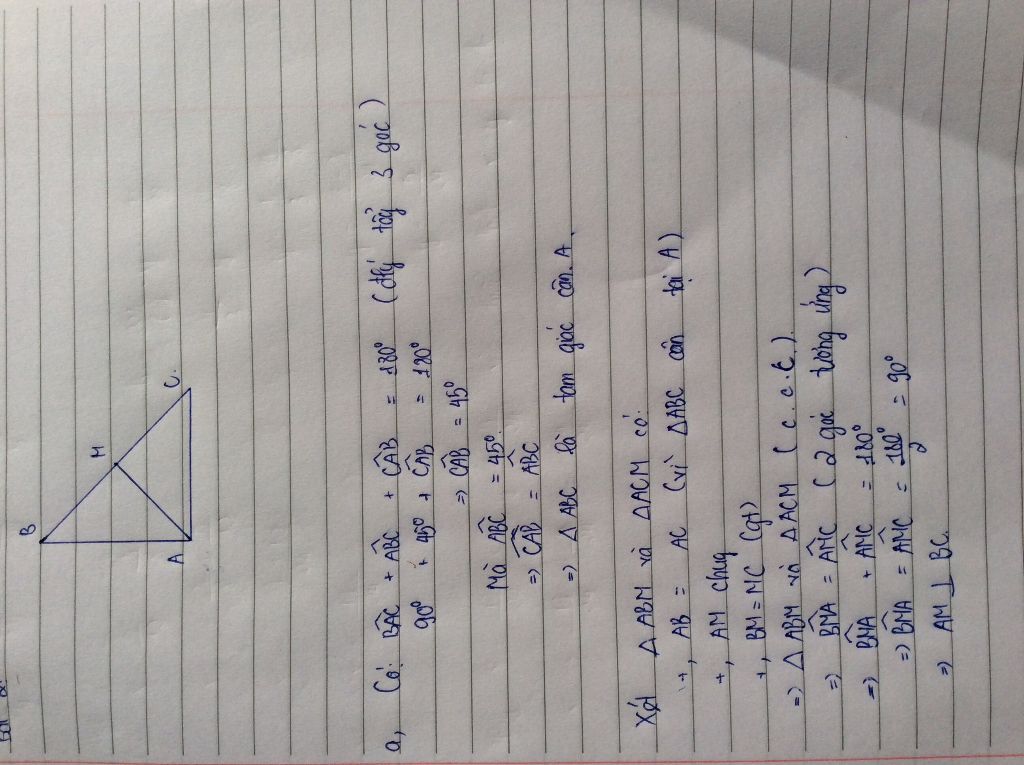 B
M
A
C.
a, Có: BAC + ABC + CAB = 180° (đlý tổg 3 góc)
90° + 45° + CAB = 180°
=> CAB = 45°
Mà ABC = 45°.
=> CAB = ABC
=> △ABC là tam giác cân A.
Xét △ABM và △ACM có:
+, AB = AC (vì △ABC cân tại A)
+, AM chug
+, BM = MC (gt)
=> △ABM và △ACM (c.c.c).
=> BMA = AMC (2 góc tương ứng)
=> BMA + AMC = 180°
=> BMA = AMC = 180°/2 = 90°
=> AM ⊥ BC.